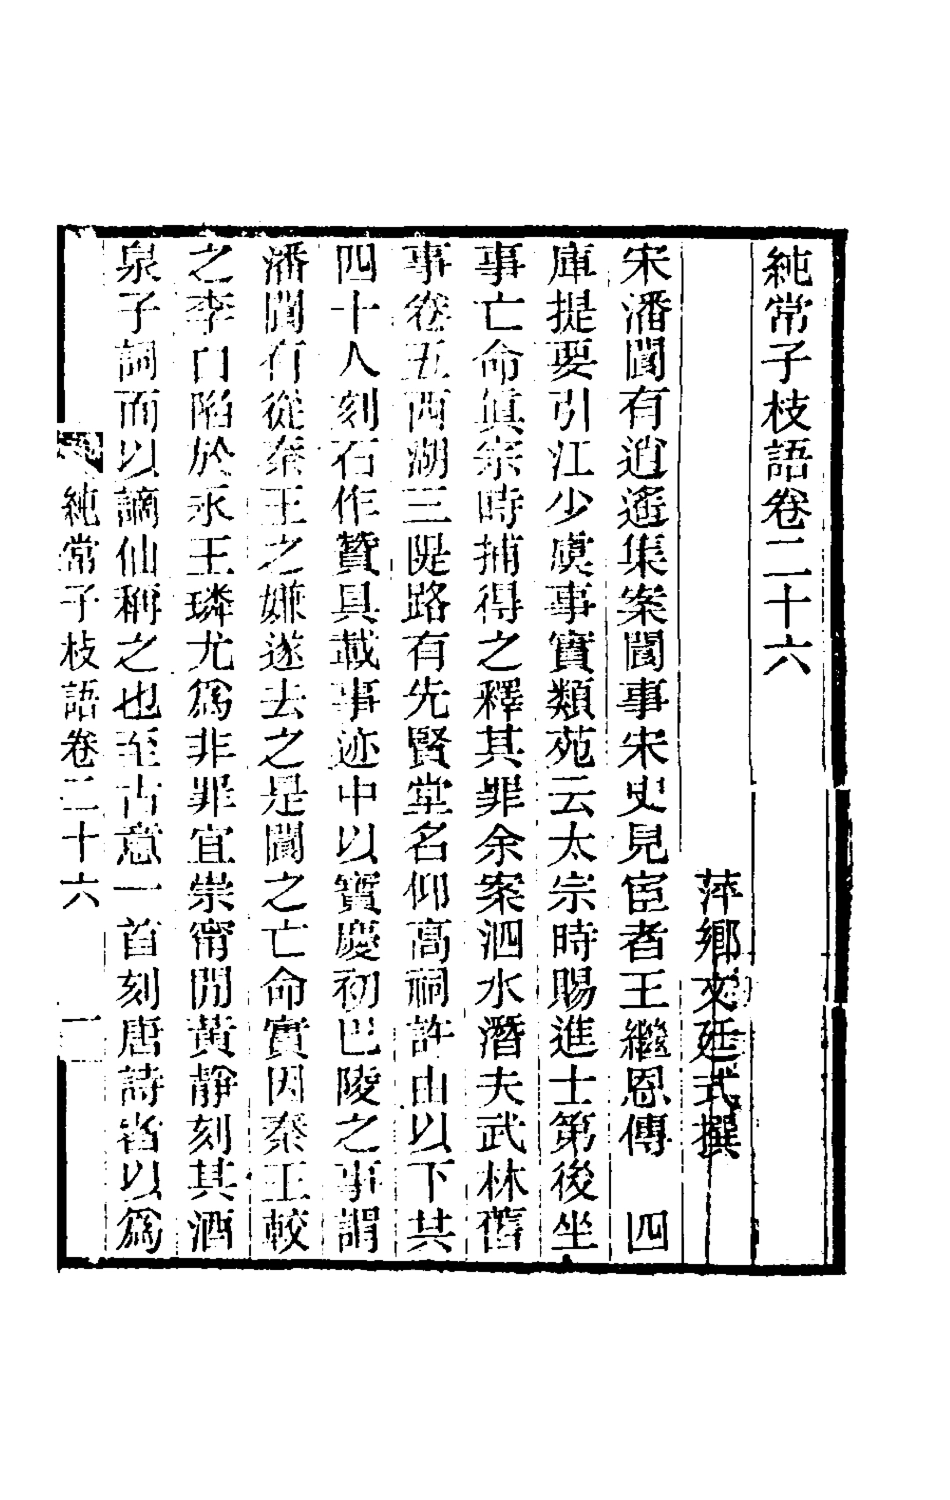 純常子枝語卷二十六
萍鄉文廷式撰
宋潘閬有逍遙集案閬事宋史見宦者王繼恩傳　四
庫提要引江少虞事實類苑云太宗時賜進士第後坐
事亡命眞宗時捕得之釋其罪余案泗水潛夫武林舊
事卷五西湖三隄路有先賢堂名仰高祠許由以下共
四十人刻石作贊具載事迹中以寶慶初巴陵之事謂
潘閬有從秦王之嫌遂去之是閬之亡命實因秦王較
之李白陷於永王璘尤爲非罪宜崇甯閒黃靜刻其酒
泉子詞而以謫仙稱之也至古意一首刻唐詩者以爲
純常子枝語卷二十六　一